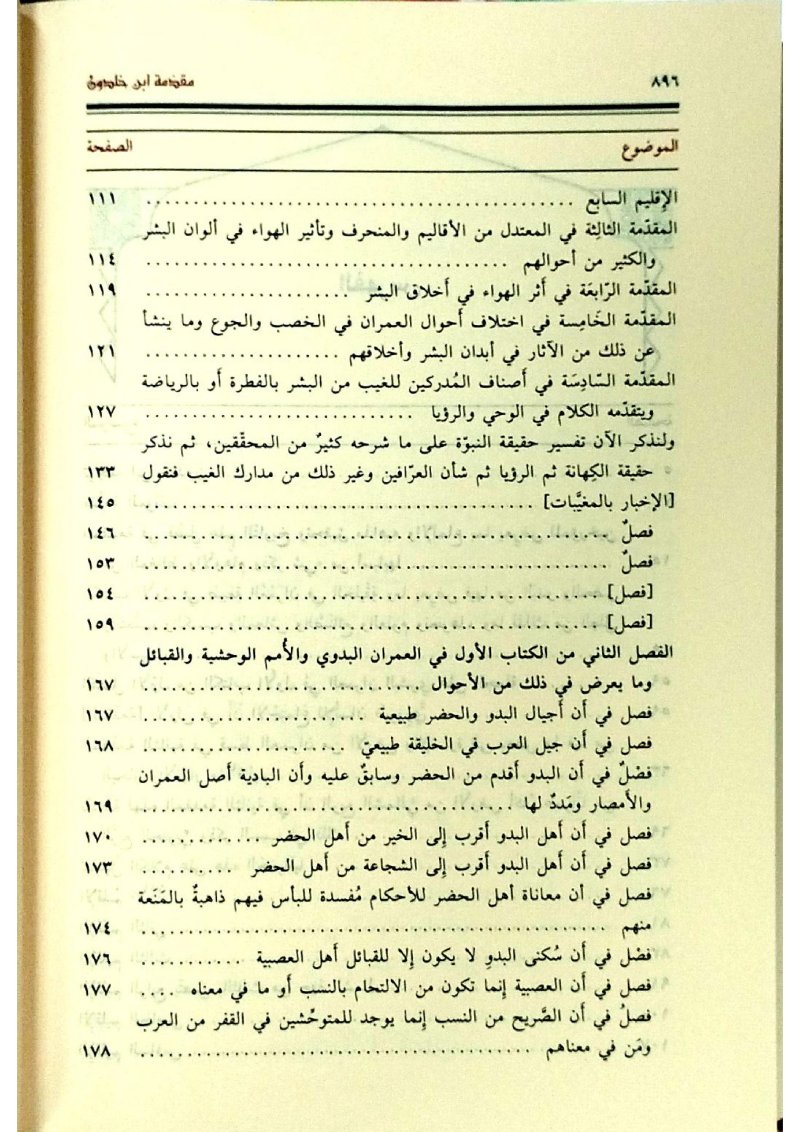 ٨٩٦ مقدمة ابن خلدون
الموضوع الصفحة
الإقليم السابع ........................................ ١١١
المقدّمة الثالِثة في المعتدل من الأقاليم والمنحرف وتأثير الهواء في ألوان البشر
والكثير من أحوالهم .................................. ١١٤
المقدّمة الرّابعَة في أَثر الهواء في أَخلاق البشر ................... ١١٩
المقدّمة الخَامِسة في اختلاف أَحوال العمران في الخصب والجوع وما ينشأ
عن ذلك من الآثار في أبدان البشر وأخلاقهم .................... ١٢١
المقدّمة السّادِسَة في أَصناف المُدركين للغيب من البشر بالفطرة أَو بالرياضة
ويتقدّمه الكلام في الوحي والرؤيا ........................... ١٢٧
ولنذكر الآن تفسير حقيقة النبوّة على ما شرحه كثيرٌ من المحقّقين، ثم نذكر
حقيقة الكِهانة ثم الرؤيا ثم شأن العرّافين وغير ذلك من مدارك الغيب فنقول ١٣٣
[الإخبار بالمغيَّبات] ..................................... ١٤٥
فصلٌ ............................................. ١٤٦
فصلٌ ............................................. ١٥٣
[فصل] ............................................ ١٥٤
[فصل] ............................................ ١٥٩
الفصل الثاني من الكتاب الأول في العمران البدوي والأُمم الوحشية والقبائل
وما يعرض في ذلك من الأحوال ............................ ١٦٧
فصل في أَن أَجيال البدو والحضر طبيعية ..................... ١٦٧
فصل في أَن جيل العرب في الخليقة طبيعيّ .................... ١٦٨
فصْلٌ في أَن البدو أَقدم من الحضر وسابقٌ عليه وأَن البادية أَصل العمران
والأَمصار ومَددٌ لها ..................................... ١٦٩
فصل في أَن أَهل البدو أَقرب إِلى الخير من أَهل الحضر ............. ١٧٠
فصل في أَن أَهل البدو أَقرب إِلى الشجاعة من أَهل الحضر .......... ١٧٣
فصل في أن معاناة أهل الحضر للأحكام مُفسدة للبأس فيهم ذاهبةٌ بالمَنَعة
منهم ............................................. ١٧٤
فصْل في أَن سُكنى البدوِ لا يكون إِلا للقبائل أَهل العصبية ........... ١٧٦
فصل في أَن العصبية إِنما تكون من الالتحام بالنسب أَو ما في معناه .... ١٧٧
فصلُ في أَن الصَّريح من النسب إِنما يوجد للمتوحِّشين في القفر من العرب
ومَن في معناهم ..................................... ١٧٨